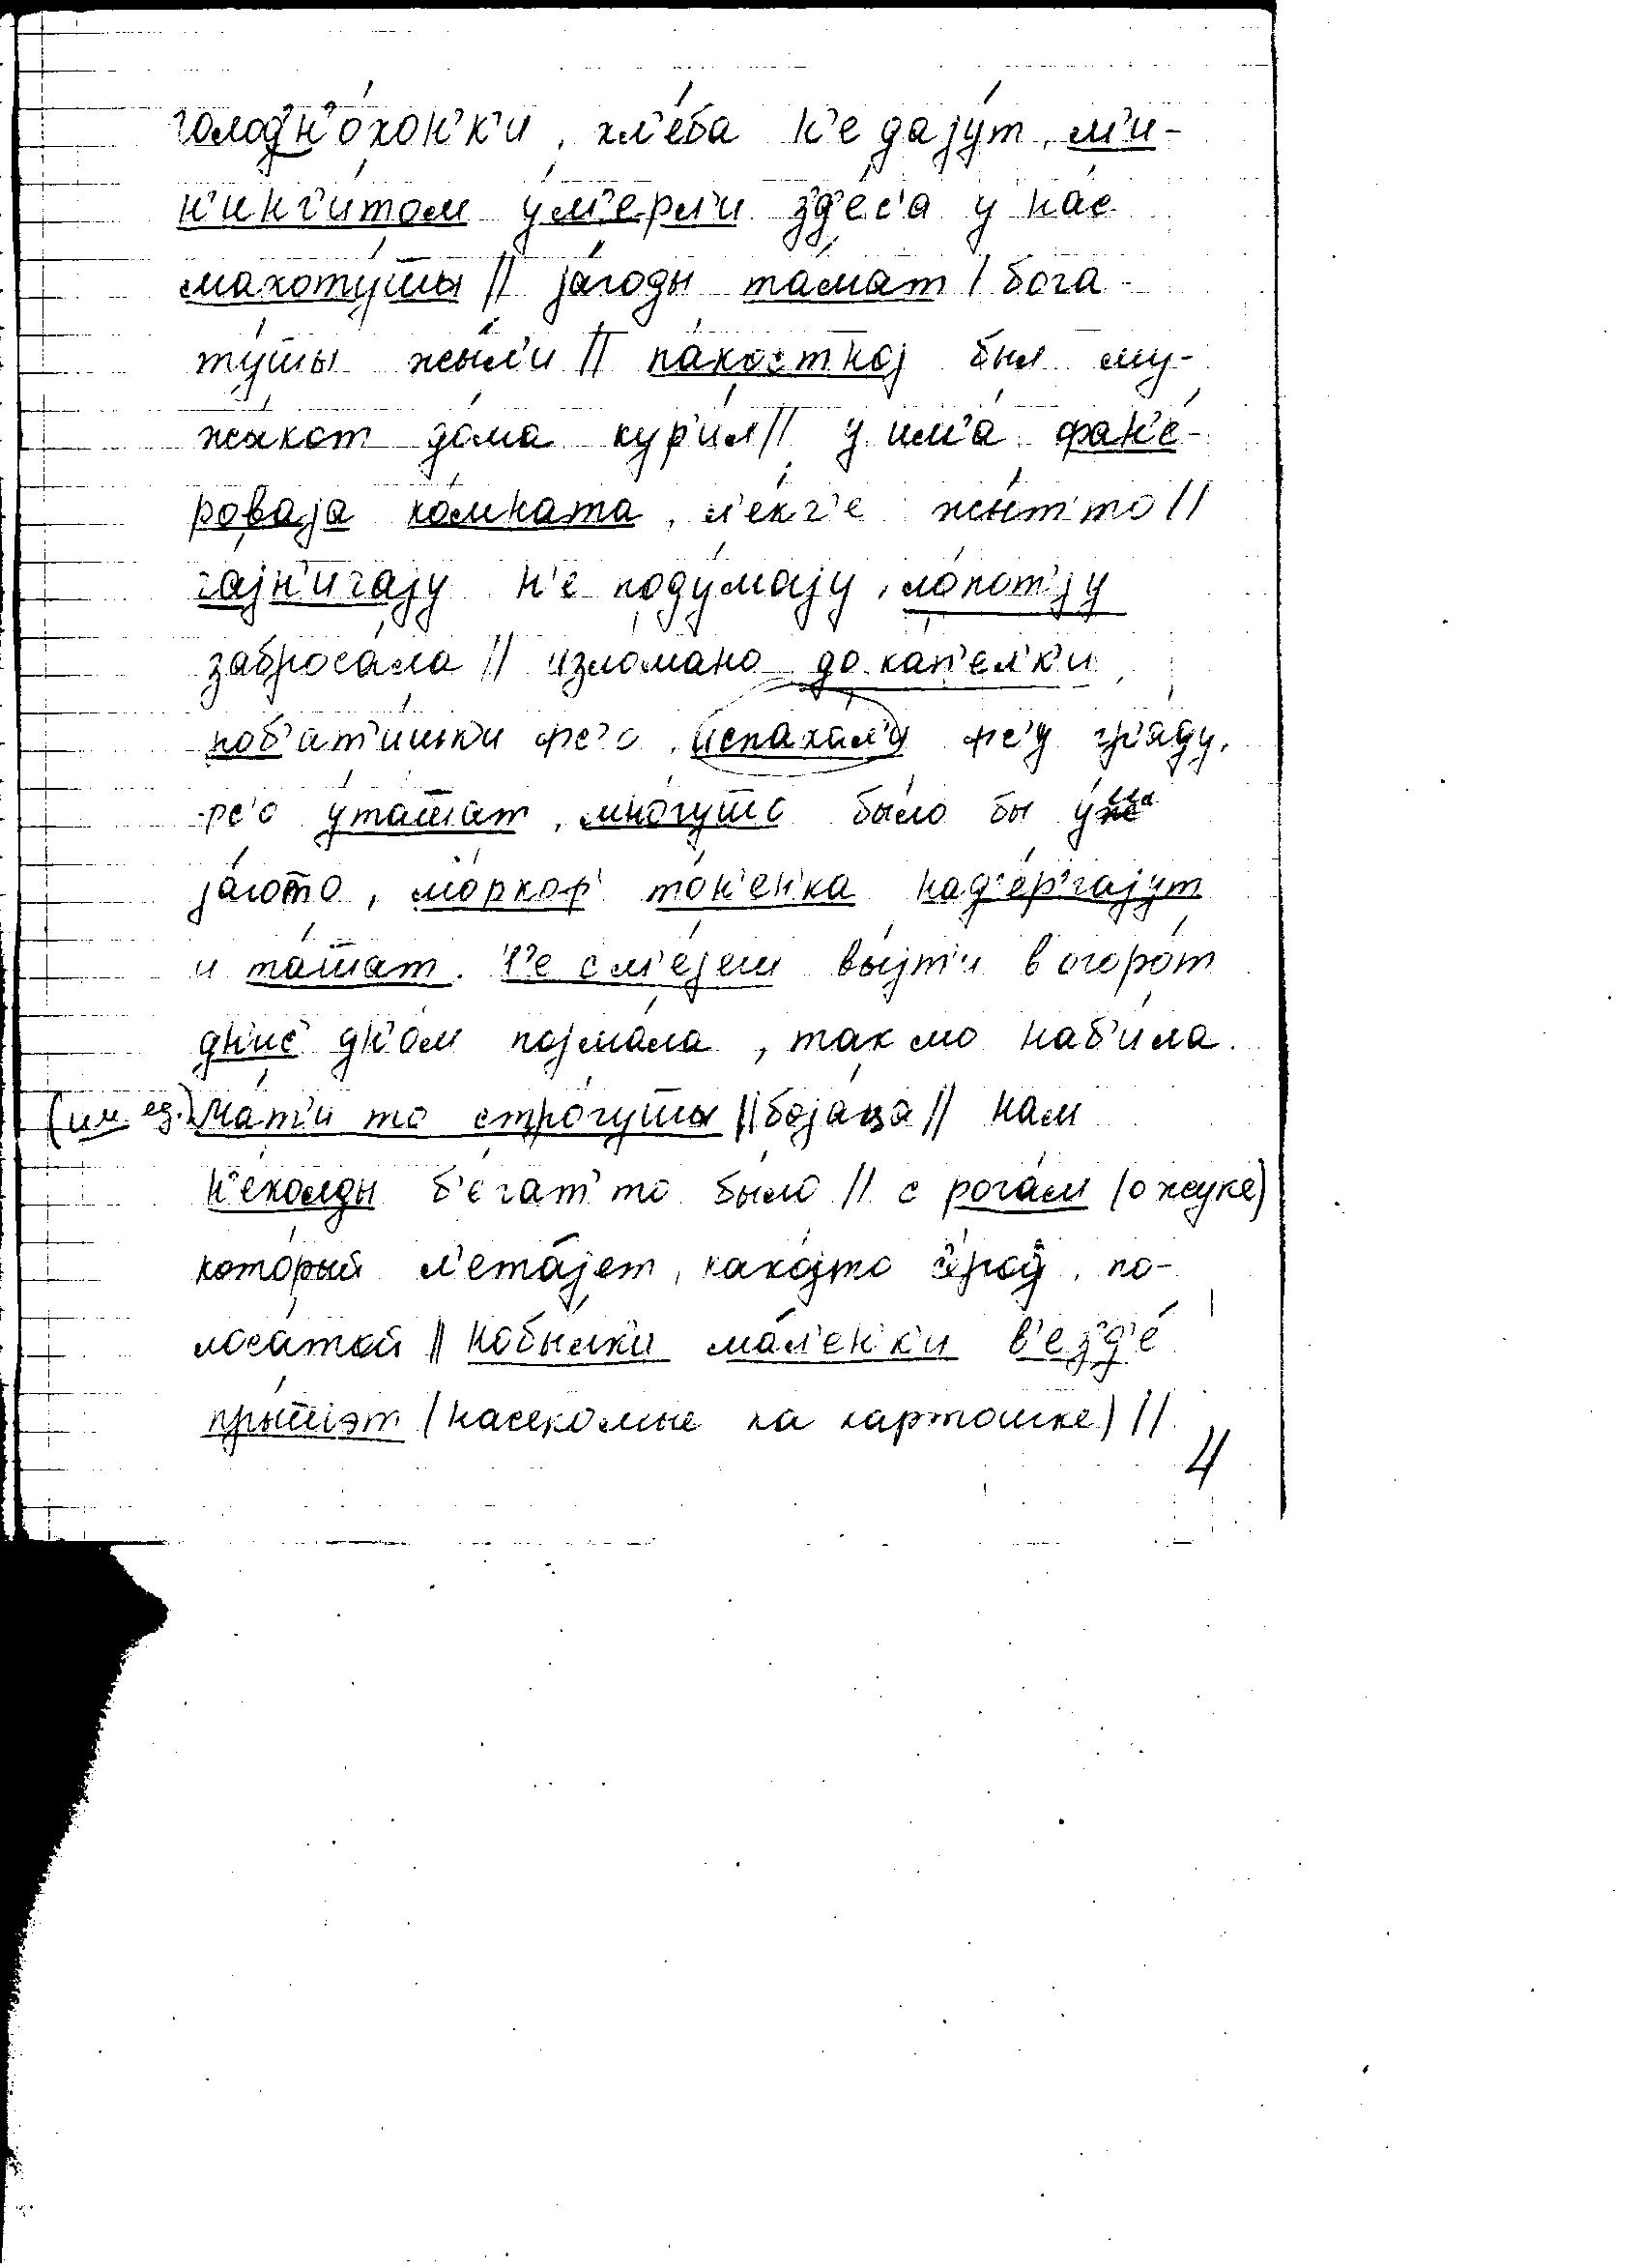 голод'н'о́хон'к'и, хл'е́ба н'е дају́т, м'и-
н'инг'и́том у́м'ерл'и з'д'е́с'а у на́с
махоту́шы // ја́годы та́шат / бога-
ту́шы жы́л'и // па́костној был му-
жыкот до́ма кур'и́л // у им'а́ фан'е́-
роваја ко́мната, л'е́кг'е жы́т'то //
гајн'ига́ју н'е поду́мају, ло́пот'ју
заброса́ла // изло́мано до ка́п'ел'к'и
роб'ат'и́шк'и фс'о испаха́л'и фс'у гр'а́ду,
фс'о у́ташат, мно́гушо бы́ло бы у́ ша
ја́гото, мо́ркоф' то́н'ен'ка над'е́р'гајут
и та́шат. Н'е см'е́јеш вы́јт'и в огоро́т
дн'ис' дн'о́м појма́ла, так мо наб'и́ла.
(им. ед.) Ма́т'и то стро́гушы // боја́ца // нам
н'е́колды б'е́гат' то бы́ло // с рога́м (о жуке)
кото́рый л'ета́јет, како́јто с'е́рој, по-
лоса́той // кобы́лк'и ма́л'ен'к'и в'ез'д'е́
пры́шэт (насекомые на картошке) //
4